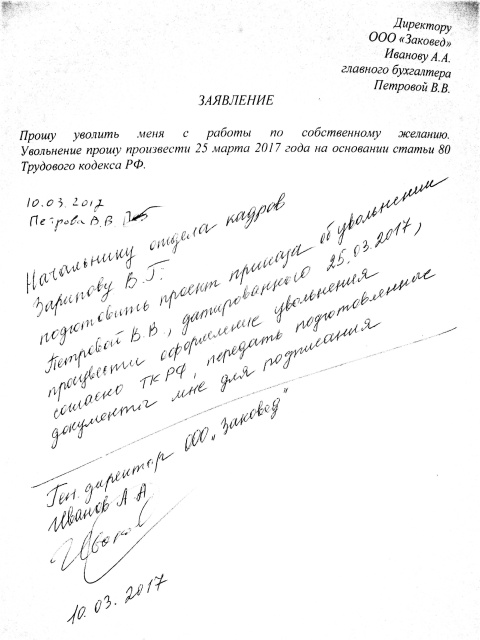 Директору
ООО «Заковед»
Иванову А.А.
главного бухгалтера
Петровой В.В.
ЗАЯВЛЕНИЕ
Прошу уволить меня с работы по собственному желанию.
Увольнение прошу произвести 25 марта 2017 года на основании статьи 80
Трудового кодекса РФ.
10.03.2017
Петрова В.В.
Начальнику отдела кадров
Зарипову В.Г.
подготовить проект приказа об увольнении
Петровой В.В., датированного 25.03.2017,
произвести оформление увольнения
согласно ТК РФ, передать подготовленные
документы мне для подписания
Ген. директор ООО „Заковед"
Иванов А А
10.03.2017